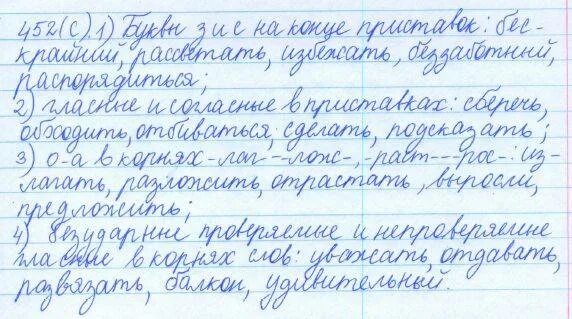 452(с). 1) Буквы з и с на конце приставок: бес-
крайний, рассветать, избежать, беззаботный,
распорядиться;
2) гласные и согласные в приставках: сберечь,
обходить, отбиваться, сделать, подсказать;
3) о-а в корнях -лаг- -лож-, -раст- -рос-: из-
лагать, разложить, отрастать, выросли,
предложить;
4) безударные проверяемые и непроверяемые
гласные в корнях слов: уважать, отдавать,
развязать, балкон, удивительный.